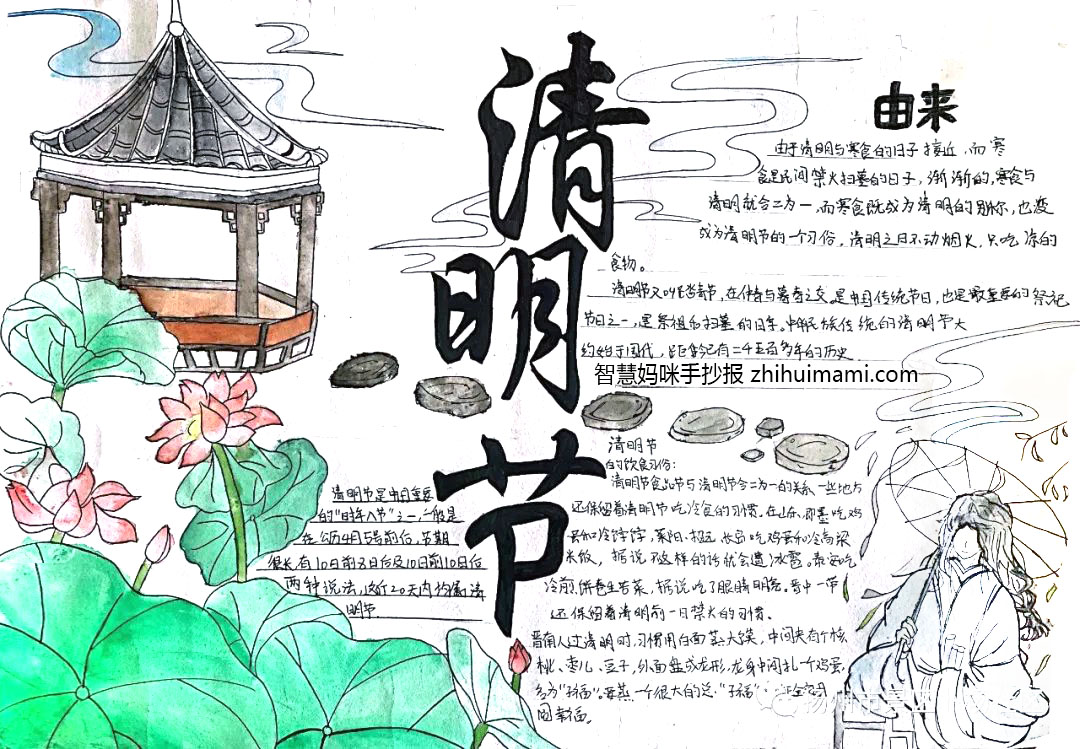 清明节
由来
由于清明与寒食的日子接近，而寒
食是民间禁火扫墓的日子，渐渐的，寒食与
清明就合二为一，而寒食既成为清明的别称，也变
成为清明节的一个习俗，清明之日不动烟火，只吃凉的
食物。
清明节又叫踏青节，在仲春与暮春之交，是中国传统节日，也是最重要的祭祀
节日之一，是祭祖和扫墓的日子。中华民族传统的清明节大
约始于周代，距今已有二千五百多年的历史
智慧妈咪手抄报 zhihuimami.com
清明节
的饮食习俗：
清明节食品节与清明节合二为一的关系，一些地方
还保留着清明节吃冷食的习惯。在山东，即墨吃鸡
蛋和冷饽饽，莱阳、招远、长岛吃鸡蛋和冷高粱
米饭，据说不这样的话就会遭冰雹。泰安吃
冷煎饼卷生苦菜，据说吃了眼睛明亮。晋中一带
还保留着清明前一日禁火的习惯。
晋南人过清明时，习惯用白面蒸大馍，中间夹有个核
桃、枣儿、豆子，外面盘成龙形，龙身中间扎一个鸡蛋，
名为"子福"。要蒸一个很大的总"子福"
团幸福。
清明节是中国重要
的"时年八节"之一，一般是
在公历4月5号前后，节期
很长，有10日前8日后及10日前10日后
两种说法，这近20天内均属清
明节